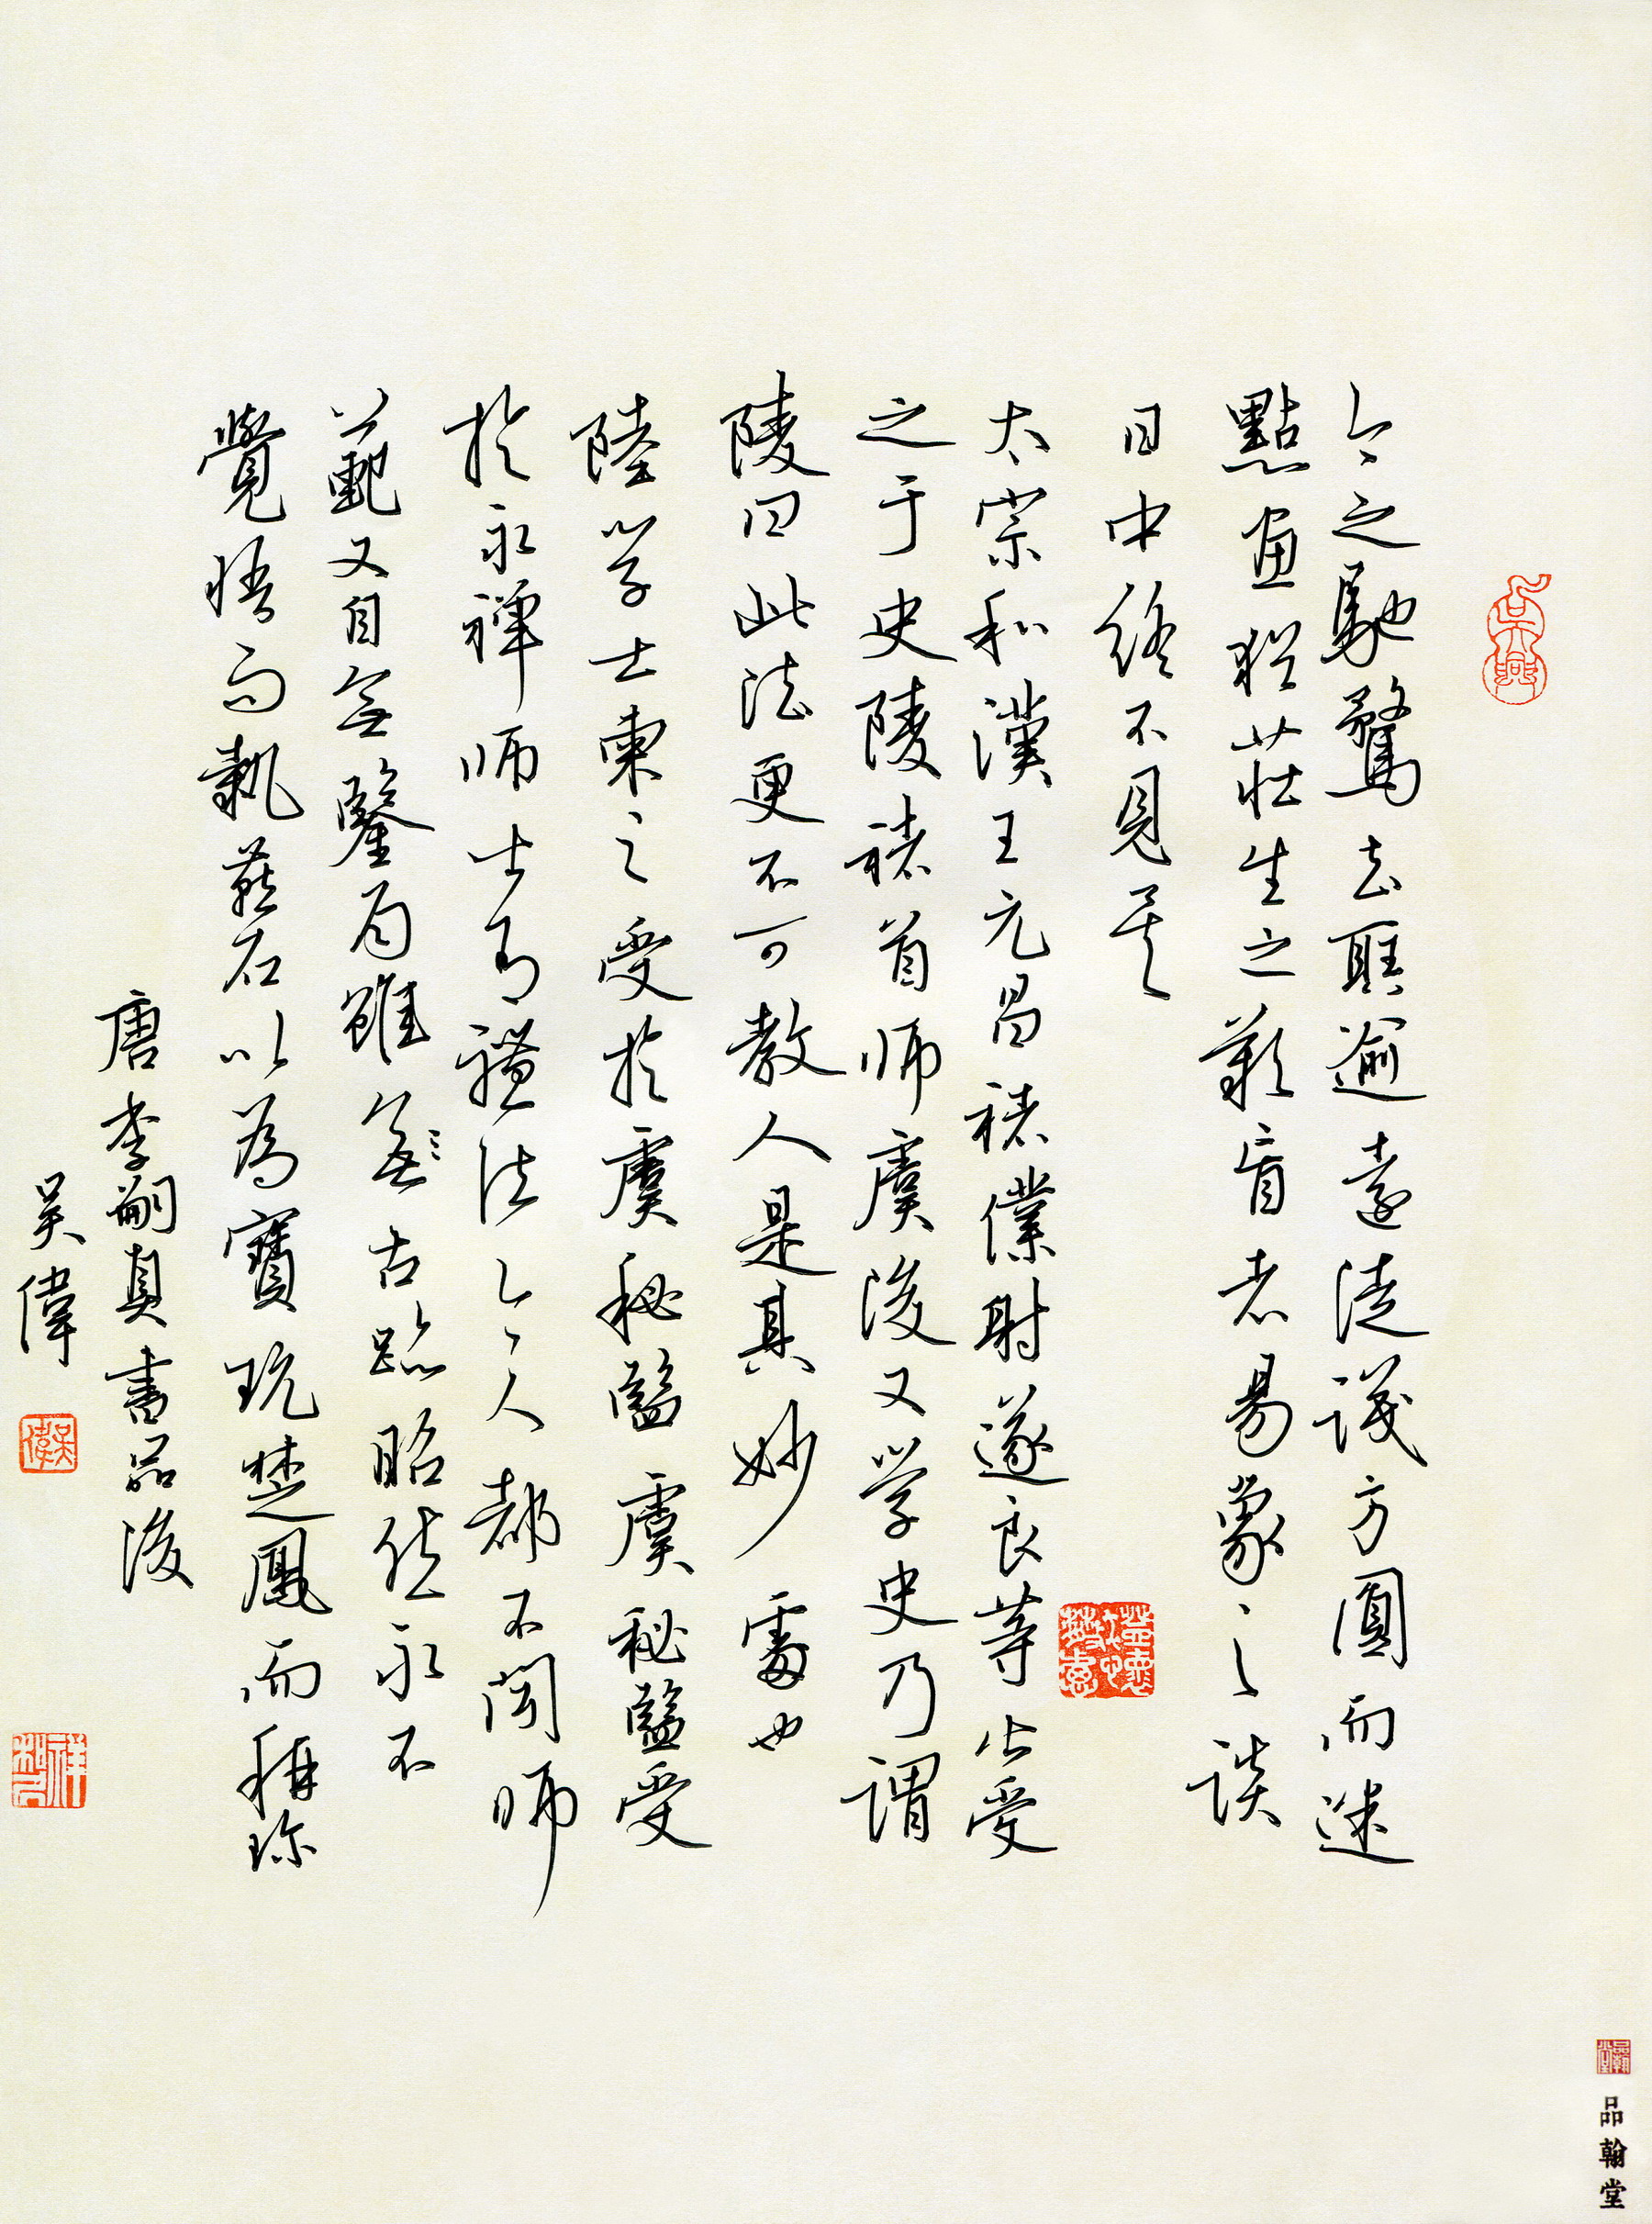 今之馳騖去聖逾遠徒識方圓而迷
點畫猶莊生之歎盲者易象之談
日中終不見矣
太宗和漢王元昌褚僕射遂良等皆受
之于史陵褚首師虞後又學史乃謂
陵曰此法更不可教人是其妙處也
陸學士柬之受於虞秘監虞秘監受
於永禪師皆有禮法今人都不聞師
範又自無鑒局雖古跡昭然永不
覺悟而執燕石以為寶玩楚鳳而稱珍
唐李嗣真書品後
吳偉
吳偉
品翰堂